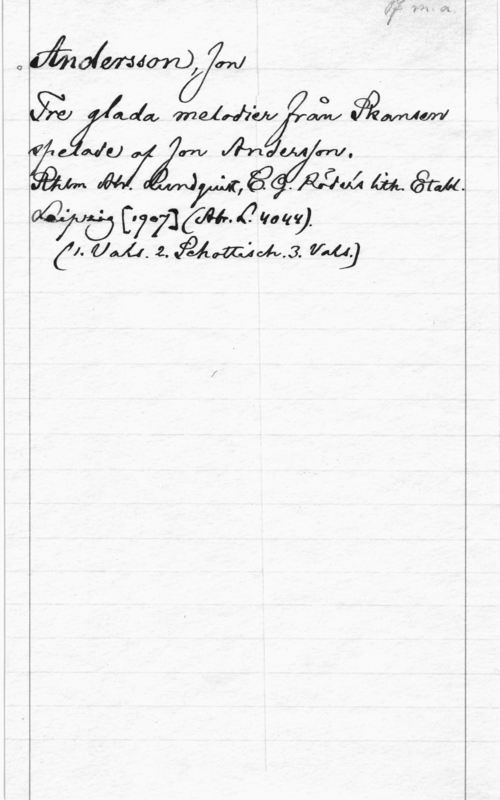 Pf m.a.
Andersson, Jon
Tre glada melodier från Skansen
spelade af Jon Andersson.
Sthlm Abr. Lundquist, C.G. Röders lith. Etabl.
Leipzig [1907] (Abr. L. 4044).
(1. Vals. 2. Schottisch. 3. Vals.)